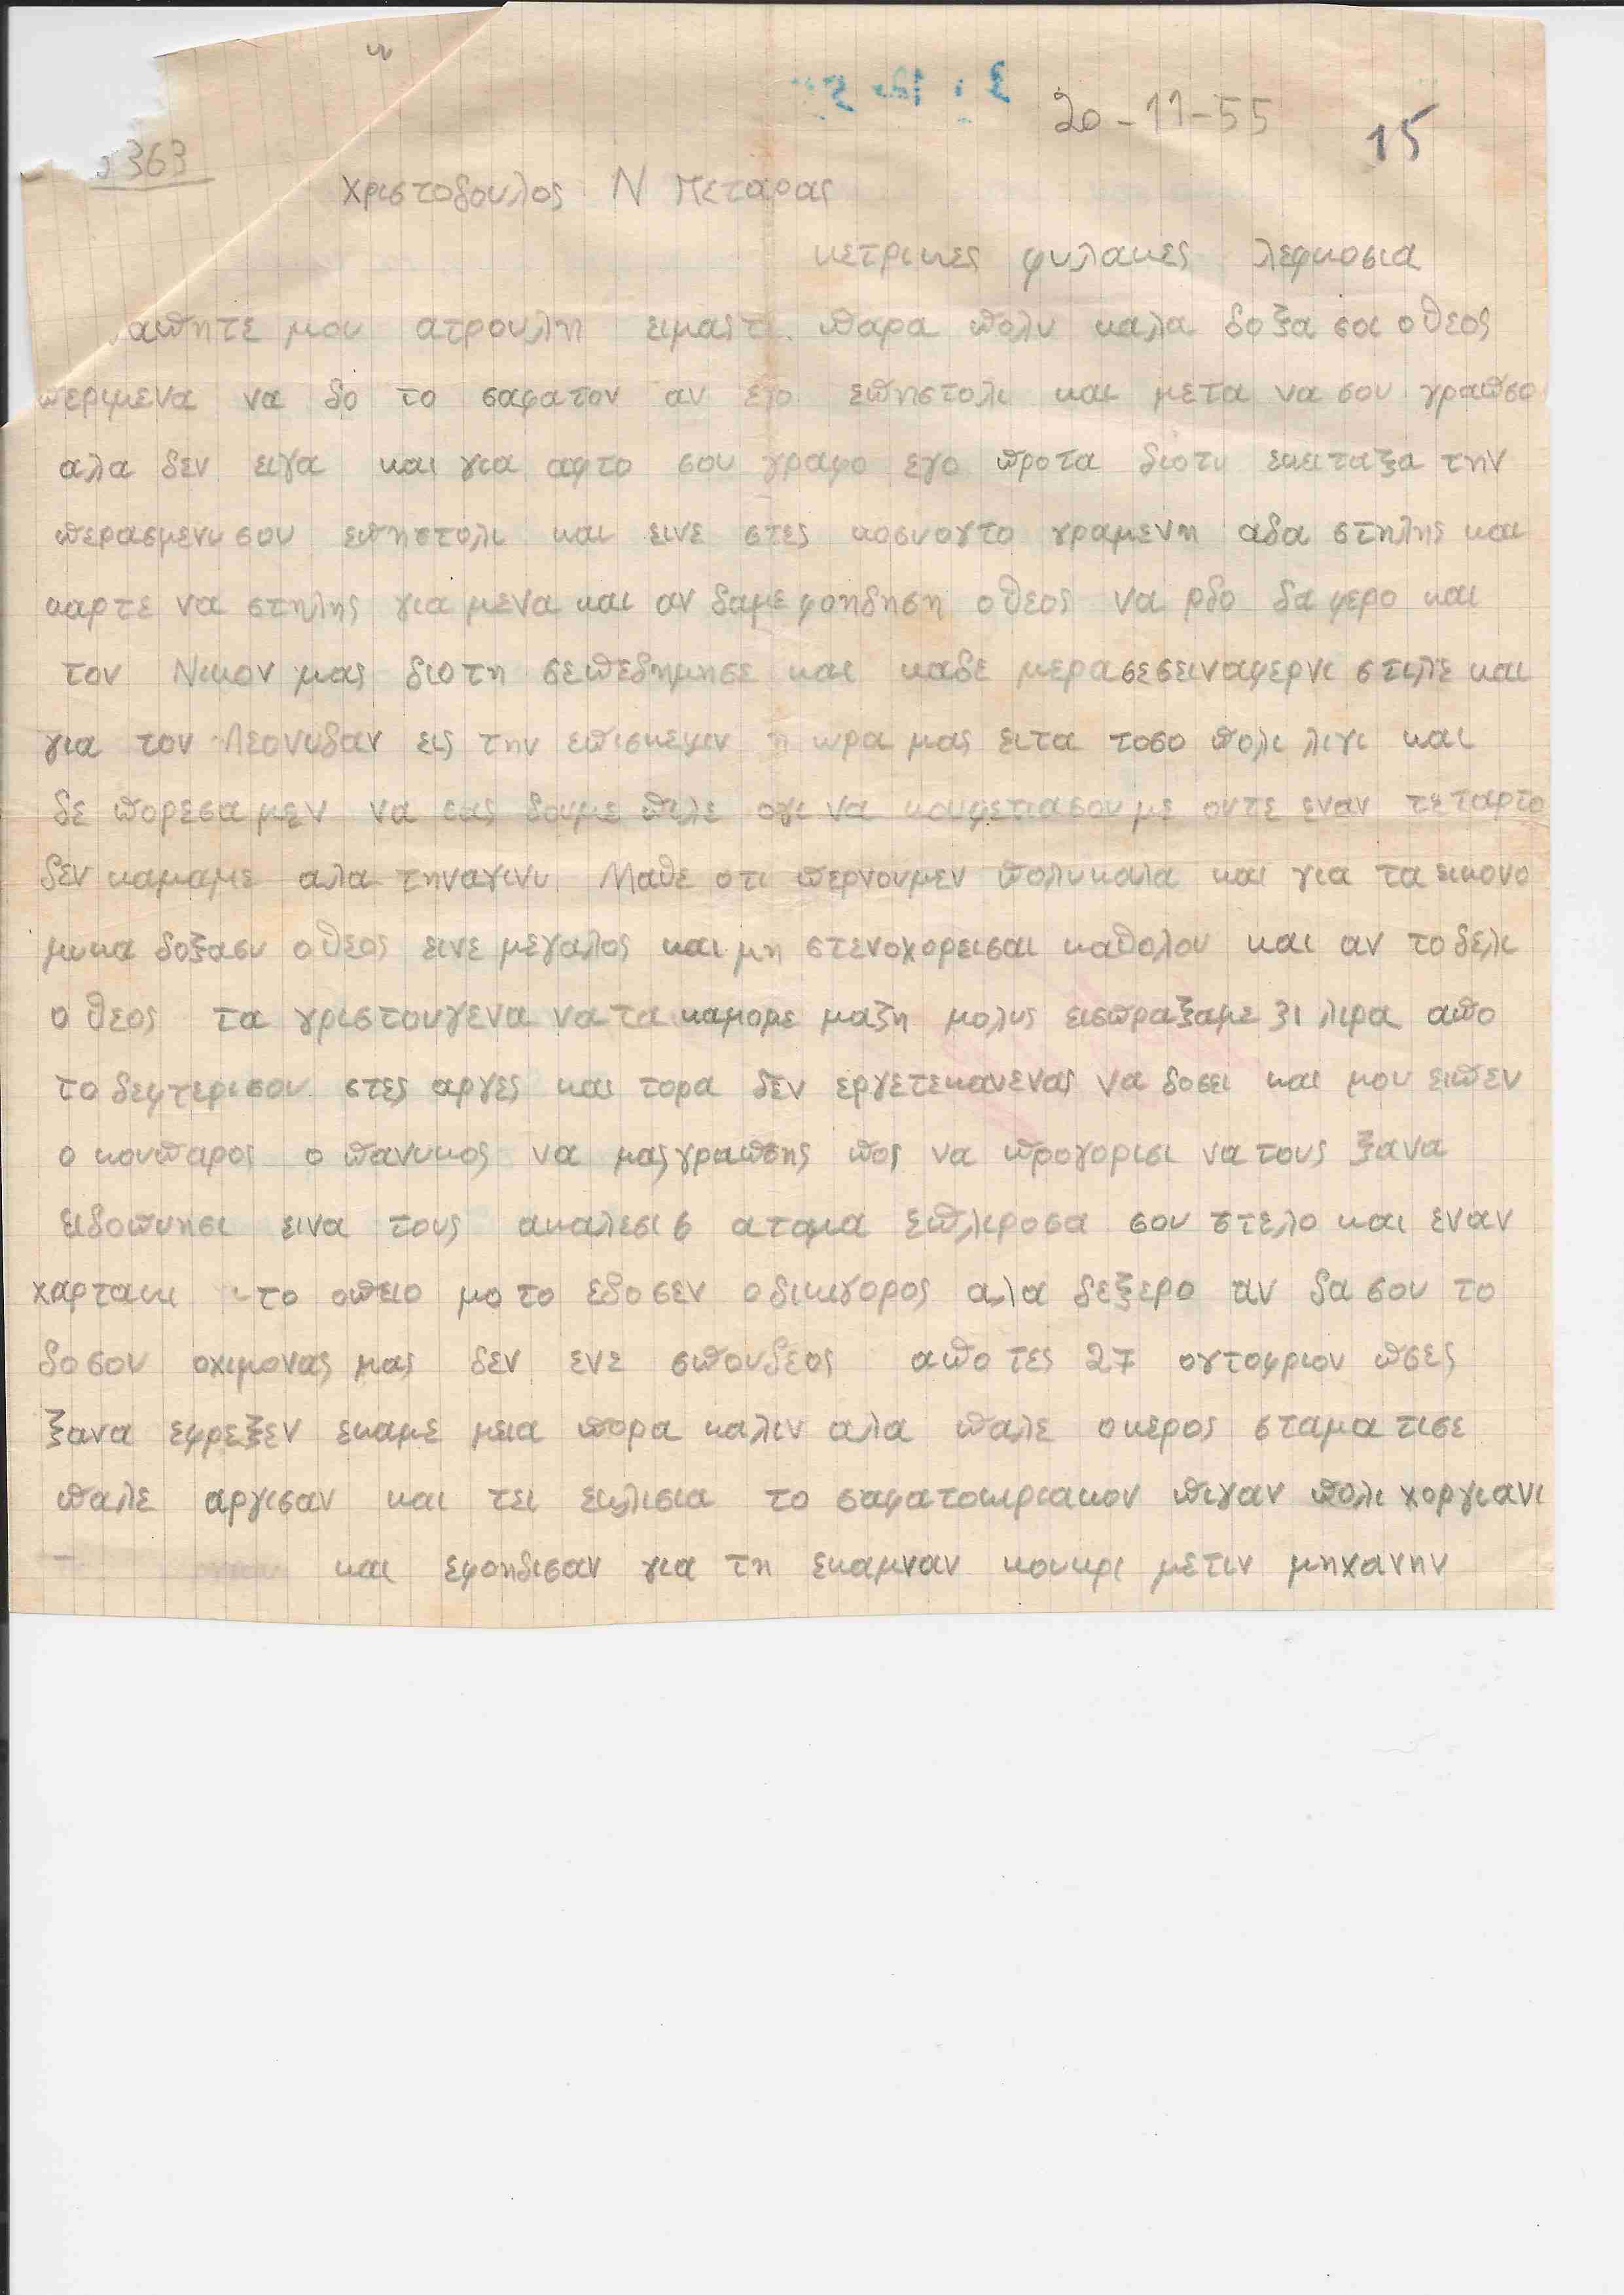 20-11-55 15
363
χριστοδουλος Ν Πεταρας
κετρικες φυλακες λεφκοσια
απητε μου ατρουλη ειμαστε παρα πολυ καλα δοξα σοι ο θεος
περιμενα να δο το σαφατον αν εχο επηστολι και μετα να σου γραπσο
αλα δεν ειγα και για αφτο σου γραφο εγο προτα διοτι εκιταξα την
περασμενι σου επηστολι και εινε στες κοσυογτο γραμενη αδα στηλης και
καρτε να στηλης για μενα και αν δαμε φοηδηση ο θεος να ρδο δα φερο και
τον Νικον μας διοτη σεπεδημησε και καδε μερα σεσειναφερνι στιλε και
για τον Λεονιδαν εις την επισκεψιν η ωρα μας ειτα τοσο πολι λιγι και
δε πορεσαμεν να σας δουμε πιλε ογι να κουφετιασουμε ουτε εναν τεταρτο
δεν καμαμε αλα τηναγινι Μαθε οτι περνουμεν πολυκαλα και για τα εικονο
μικα δοξασυ ο θεος εινε μεγαλος και μη στενοχορεισαι καθολου και αν το δελι
ο θεος τα γριστουγενα να τα καμομε μαζη μολυς εισπραξαμε 31 λιρα απο
το δεφτερισου στες αργες και τορα δεν εργετεκανενας να δοσει και μου ειπεν
ο κουπαρος ο πανικος να μας γραπσης πος να προγορισι να τους ξανα
ειδοπιησι εινα τους ακαλεσι 6 ατομα επλιροσα σου στελο και εναν
χαρτακι το οπειο μο το εδοσεν ο δικιγορος αλα δεξερο αν δα σου το
δοσουν οχιμονας μας δεν ενε σπουδεος απο τες 27 ογτοφριου πσες
ξανα εφρεξεν εκαμε μεια πορα καλιν αλα παλε ο κερος σταματισε
παλε αργισαν και τει εκλισια το σαφατοκιριακον πιγαν πολι χοργιανι
και εφοηδισαν για τη εκαμναν κουκρι μετιν μηχανην